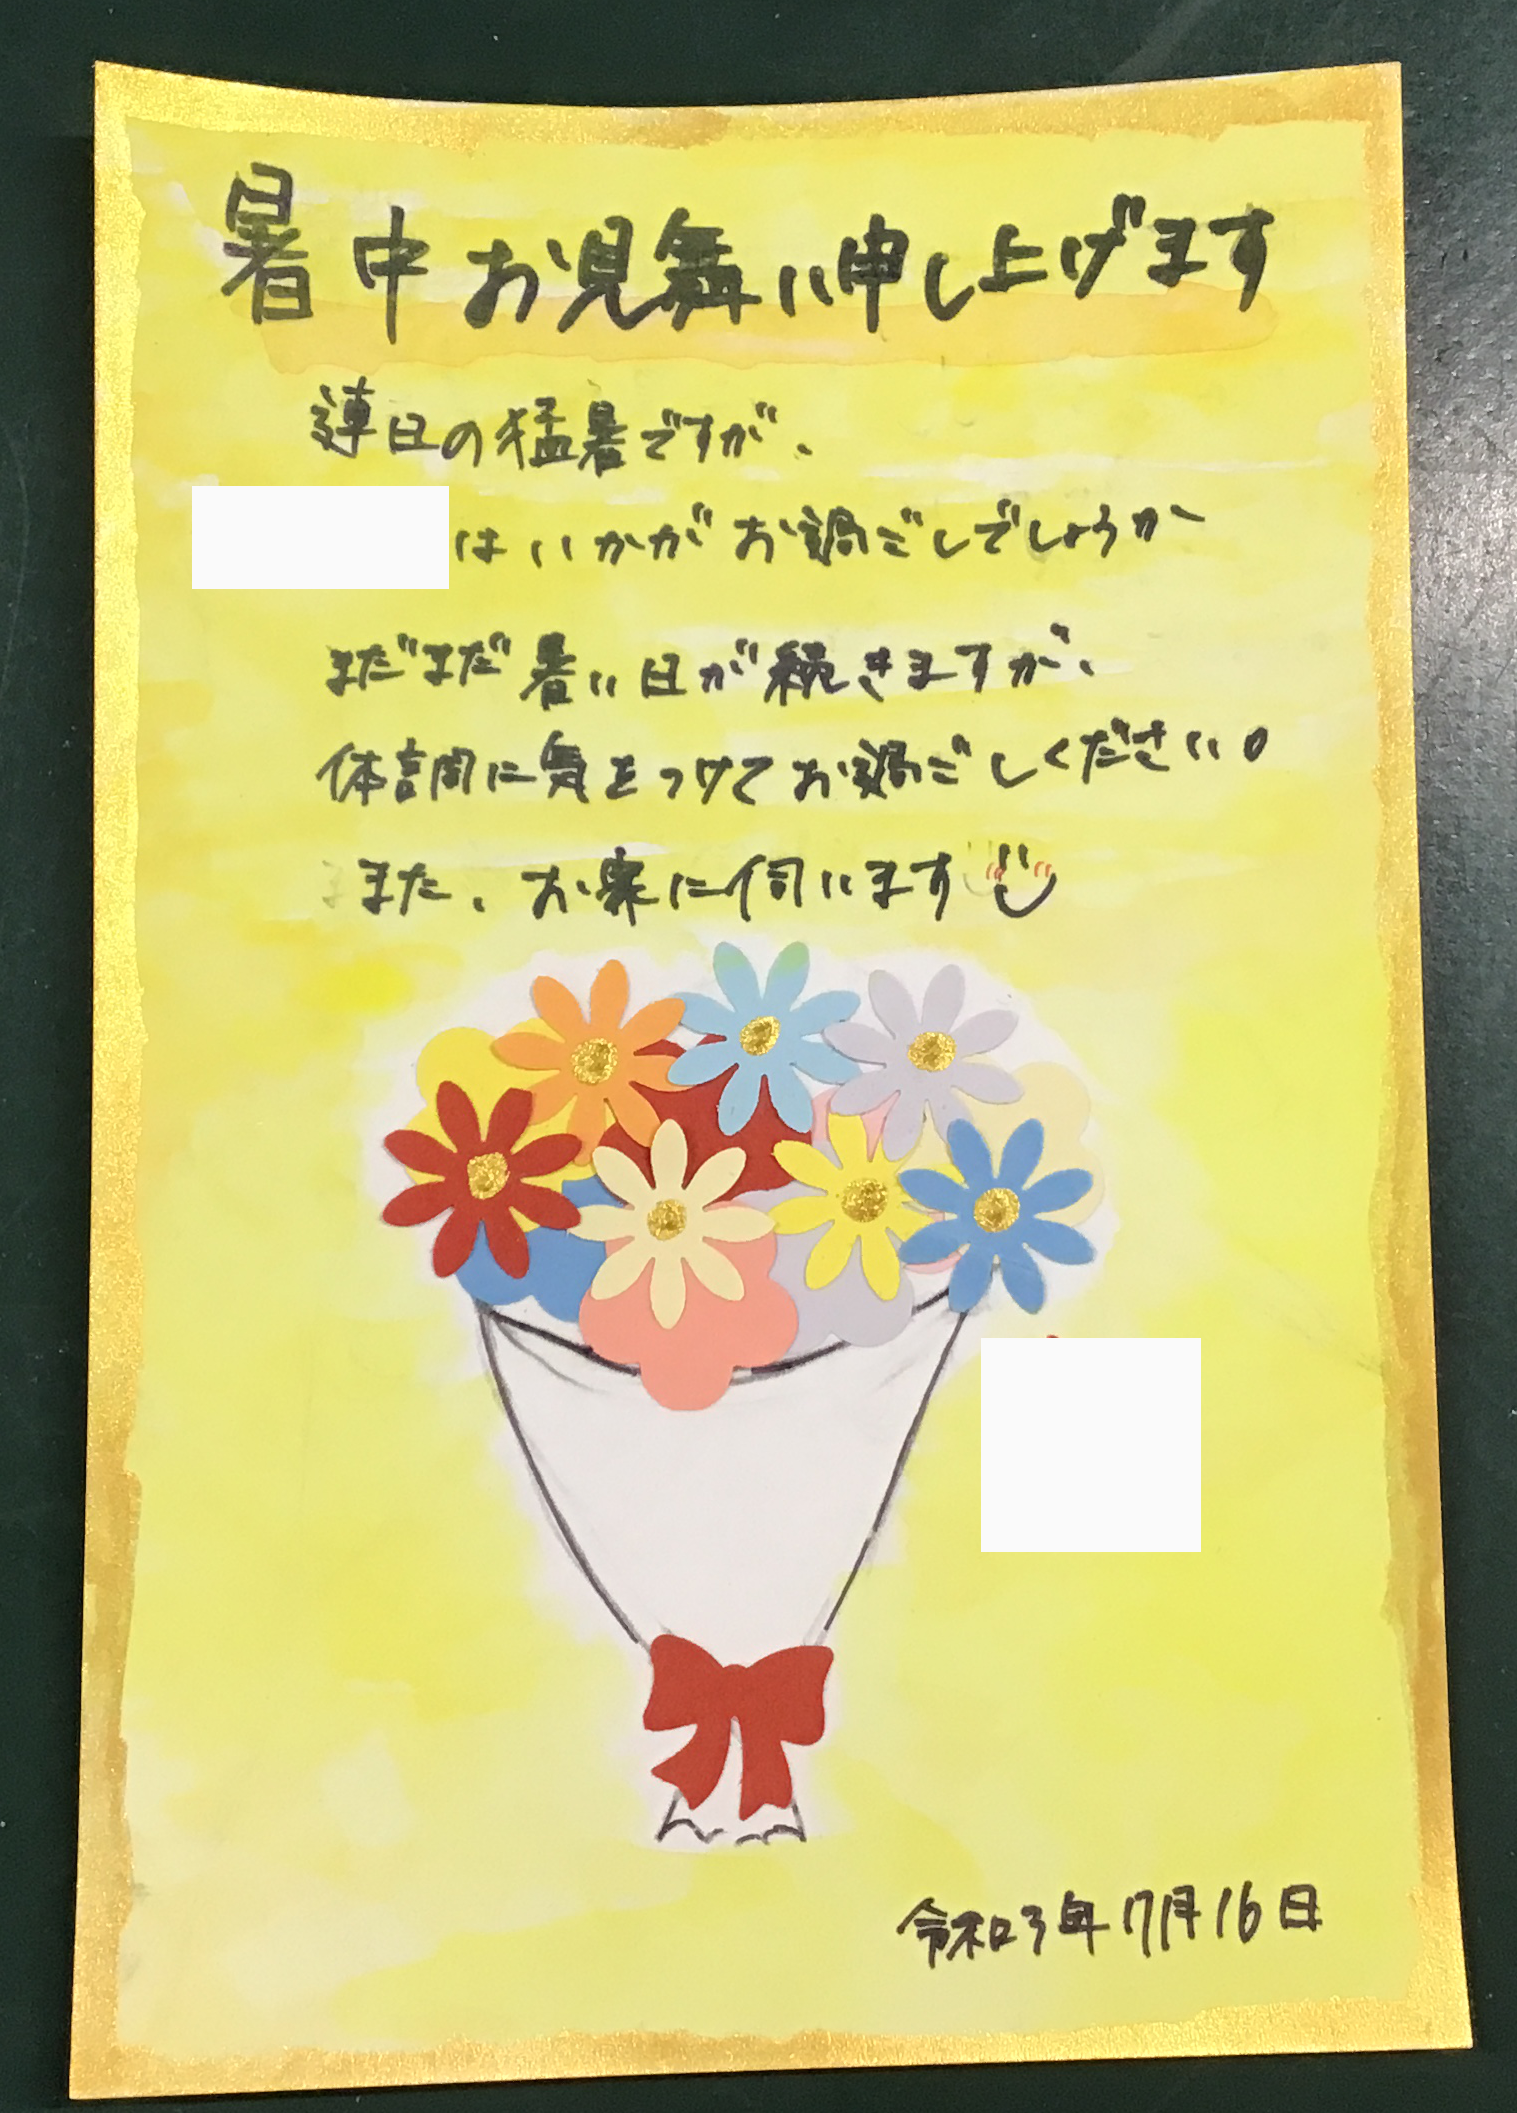 暑中お見舞い申し上げます
連日の猛暑ですが、
はいかがお過ごしでしょうか
まだまだ暑い日が続きますが、
体調に気をつけてお過ごしください。
また、お家に伺います
令和3年7月16日